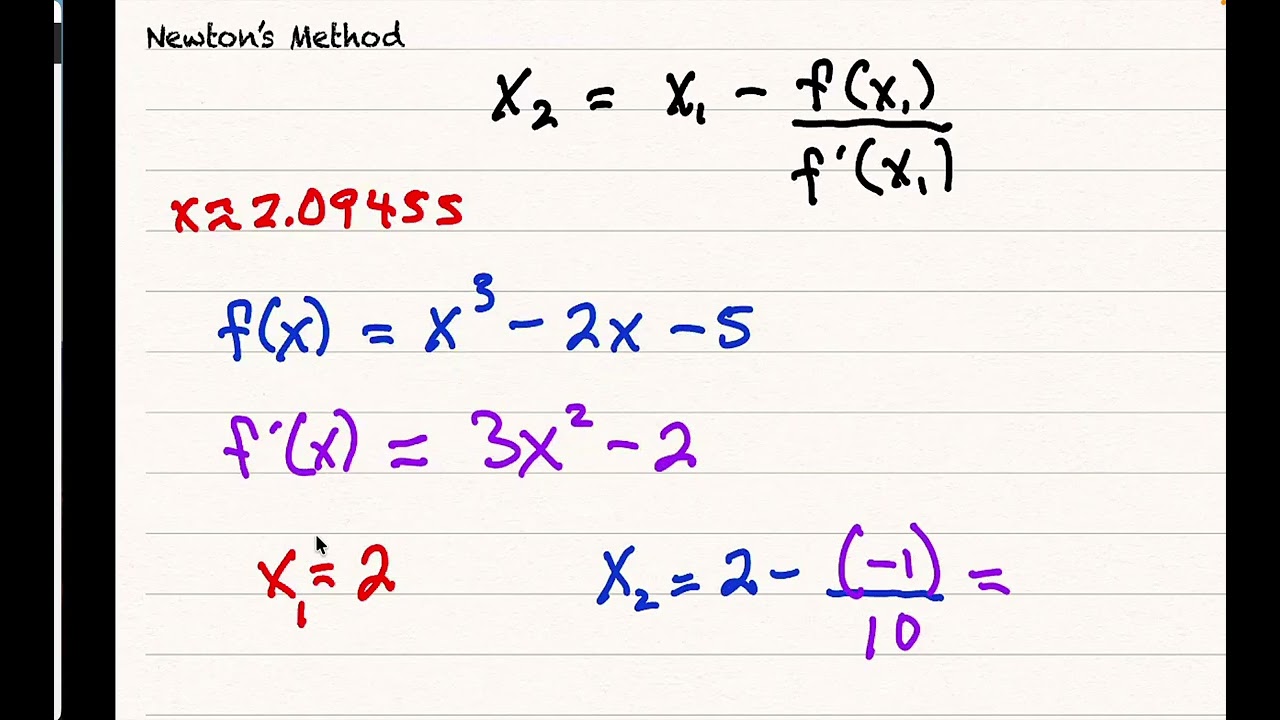 Newton's Method
x₂ = x₁ - f(x₁)/f'(x₁)
x≈2.09455
f(x) = x³ - 2x - 5
f'(x) = 3x² - 2
x₁ = 2
x₂ = 2 - (-1)/10 =